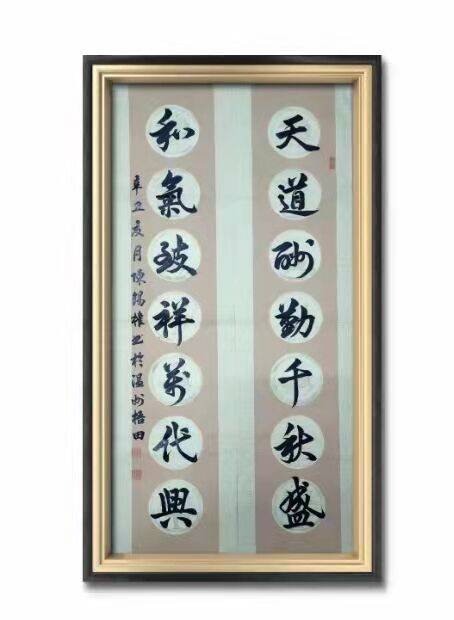 天道酬勤千秋盛
和氣致祥萬代興
辛丑亥月陳錫樑書於溫州梧田